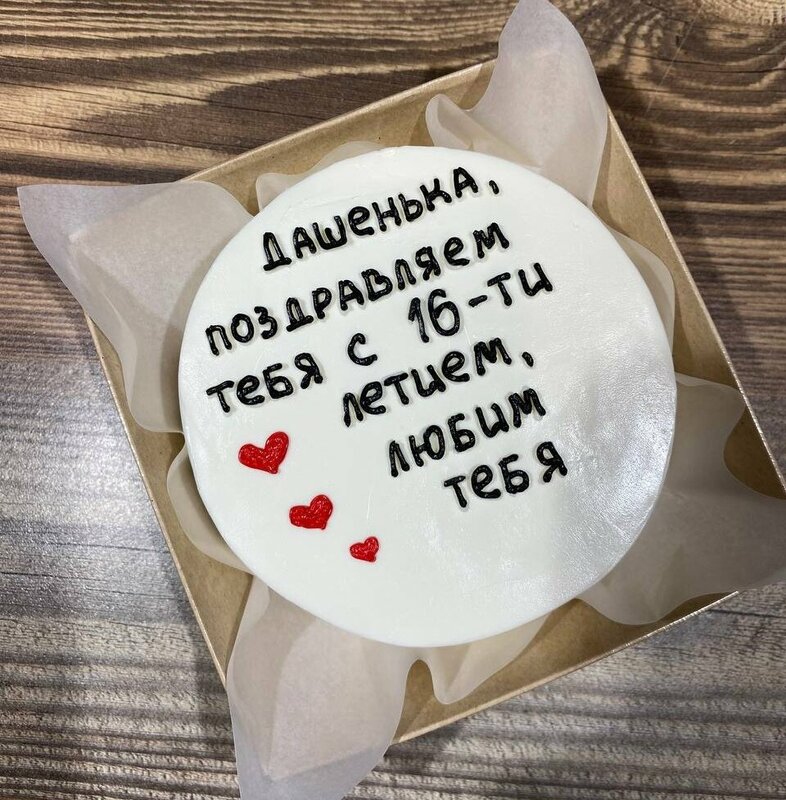 Дашенька,
поздравляем
тебя с 16-ти
летием,
любим
тебя